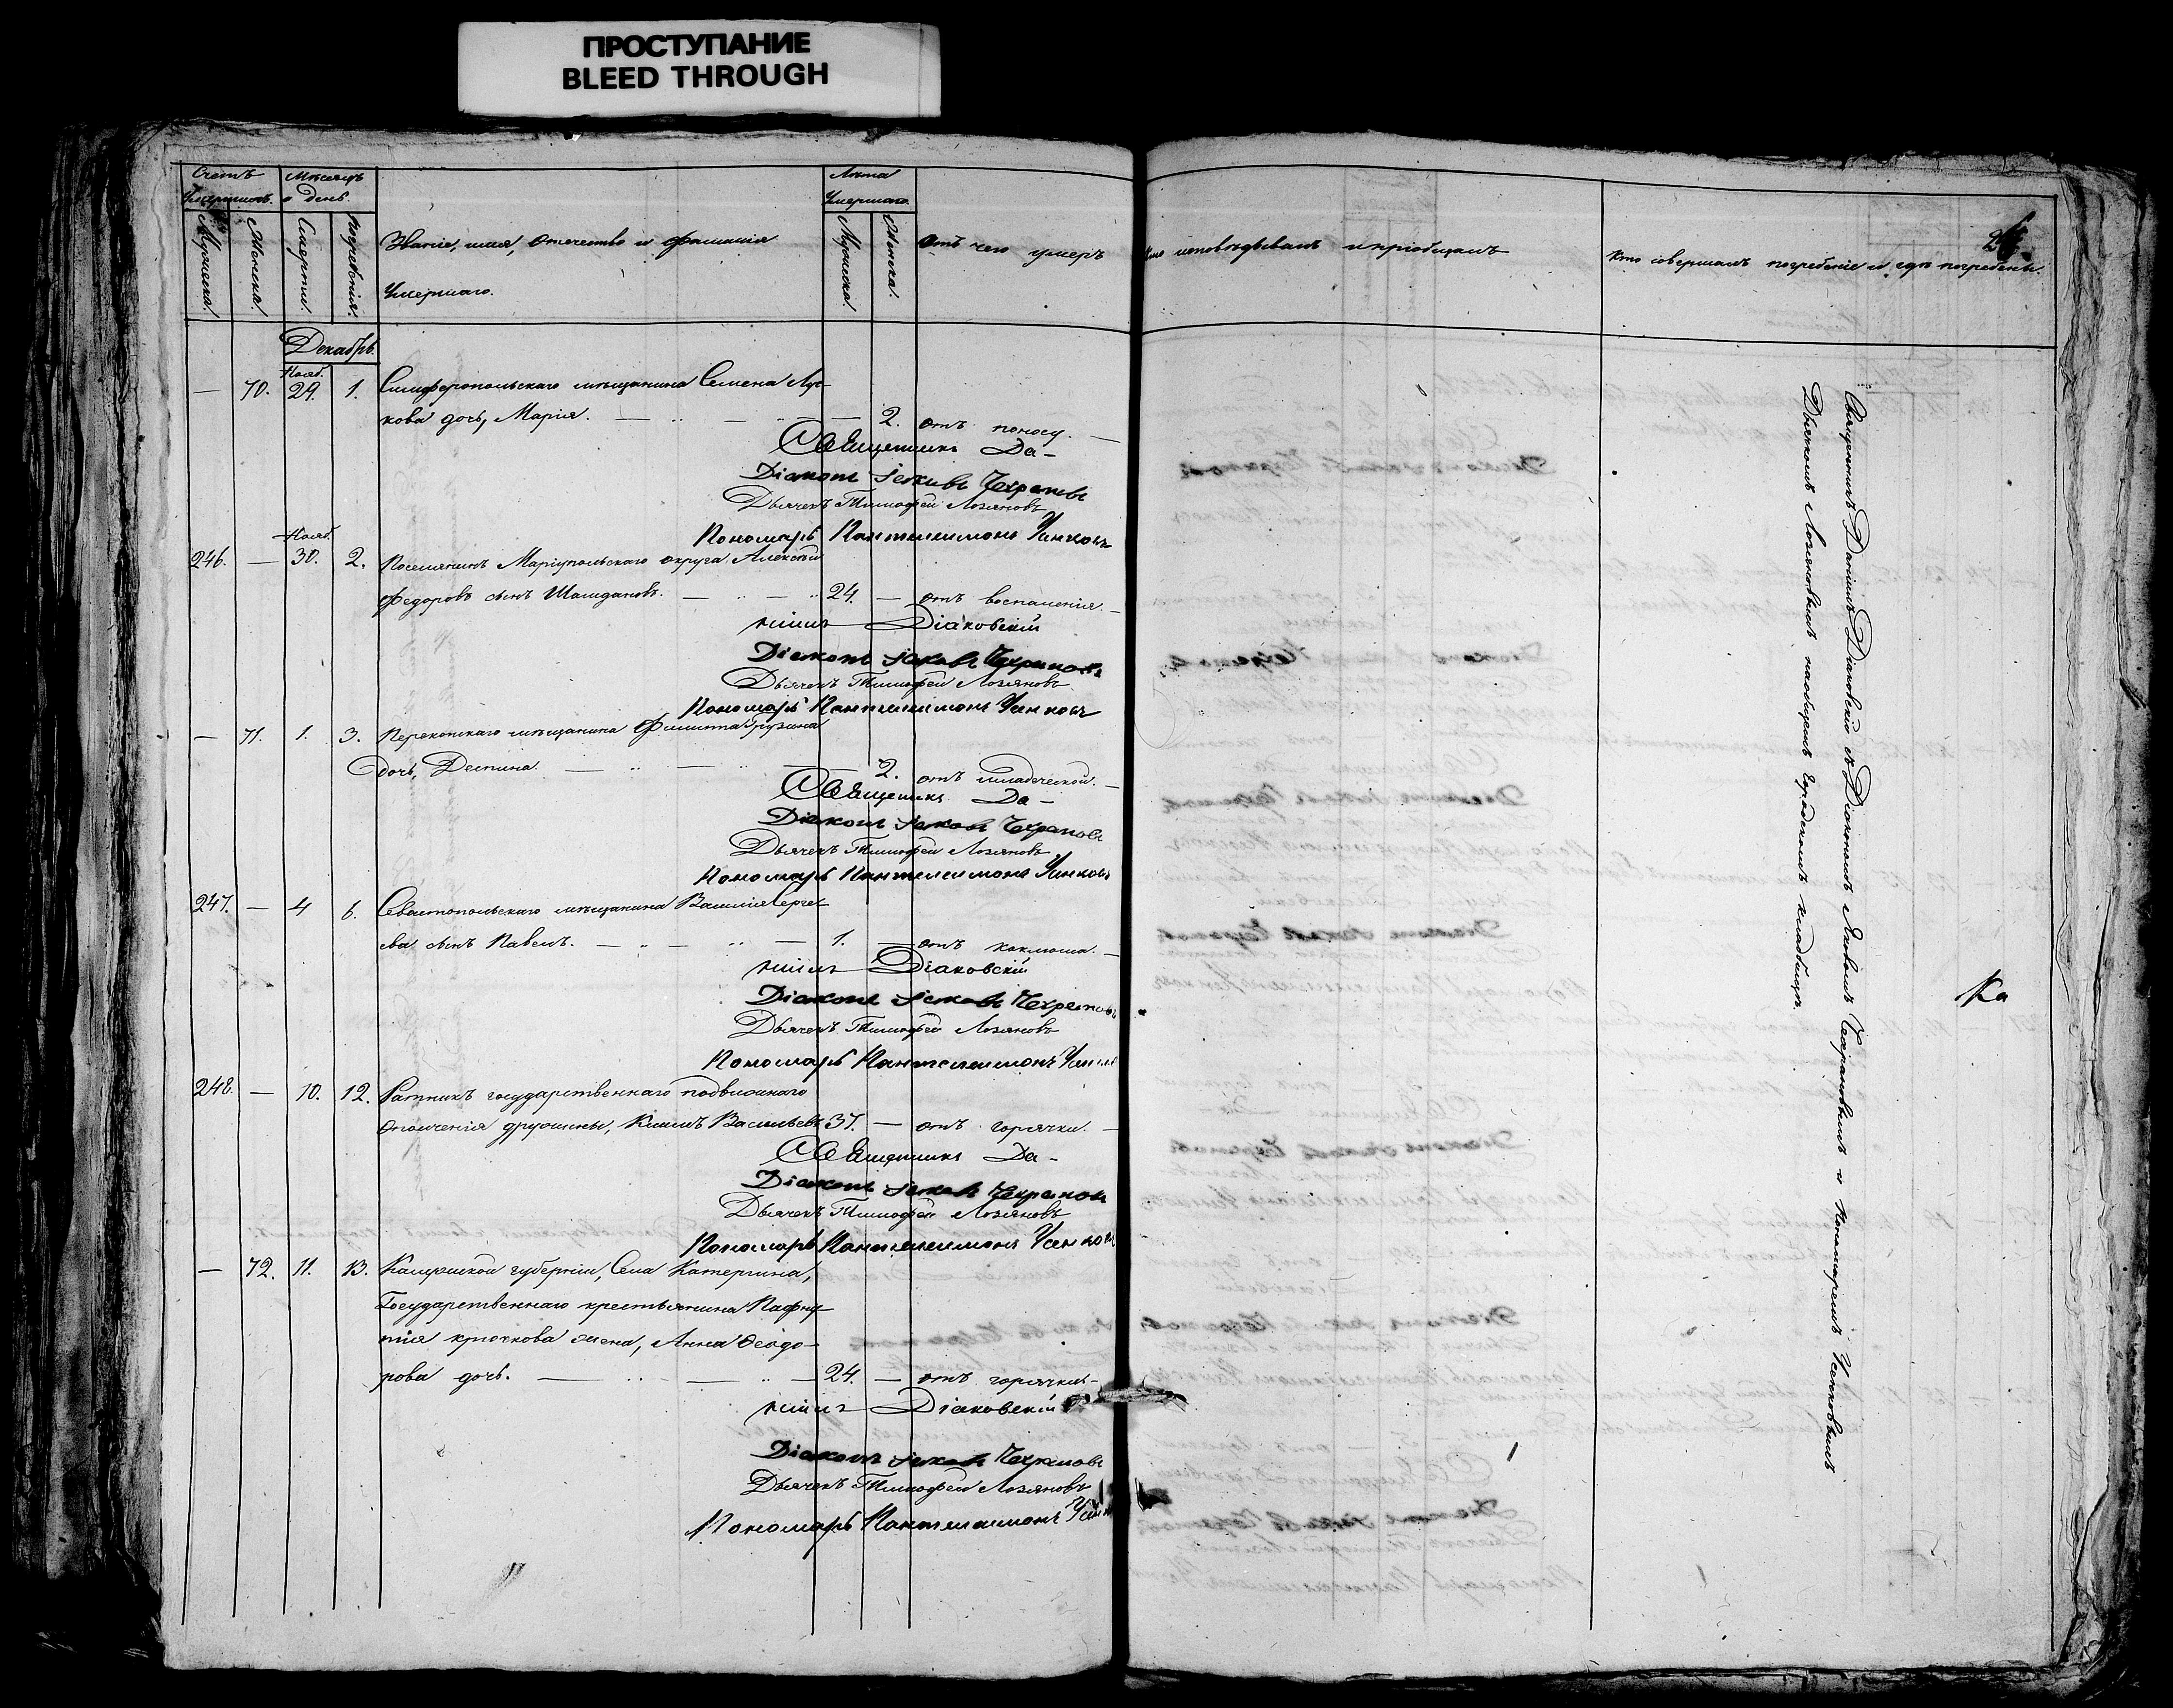 ПРОСТУПАНИЕ
BLEED THROUGH
Счетъ
Умершихъ.
Мѣсяцъ
и день.
Лѣта
Умершаго.
Мужеска.
Женска.
Смерти.
Погребенія.
Званіе, имя, отечество и фамилія
Умершаго.
Мужска.
Женска.
Отъ чего умеръ
Кто исповѣдывалъ и пріобщалъ
Кто совершалъ погребеніе и гдѣ погребены.
Декабрь.
Нояб.
— 70. 29. 1. Симферопольскаго мѣщанина Семена Лус-
кова дочь, Марія. — — 2. отъ поносу. —
Священникъ Да-
Діаконъ Іаковъ Чехрановъ
Дьячекъ Тимофей Лозяновъ
Пономарь Пантелеимонъ Ченковъ
Нояб.
246. — 30. 2. Поселянинъ Маріупольскаго округа Алексѣй
Федоровъ сынъ Шалдановъ. — 24. — отъ воспаленія. —
ніилъ Діаковскій
Діаконъ Іаковъ Чехрановъ
Дьячекъ Тимофей Лозяновъ
Пономарь Пантелеимонъ Ченковъ
— 71. 1. 3. Перекопскаго мѣщанина Филиппа Грузина
дочь, Деспина. — — 2. отъ младеческой. —
Священникъ Да-
Діаконъ Іаковъ Чехрановъ
Дьячекъ Тимофей Лозяновъ
Пономарь Пантелеимонъ Ченковъ
247. — 4 6. Севастопольскаго мѣщанина Василія Сергѣ-
ева сынъ Павелъ. — — 1. — отъ коклюша. —
ніилъ Діаковскій
Діаконъ Іаковъ Чехрановъ
Дьячекъ Тимофей Лозяновъ
Пономарь Пантелеимонъ
248. — 10. 12. Ратникъ государственнаго подвижнаго
ополченія дружины, Климъ Васильевъ 37. — отъ горячки. —
Священникъ Да-
Діаконъ Іаковъ Чехрановъ
Дьячекъ Тимофей Лозяновъ
Пономарь Пантелеимонъ Ченковъ
— 72. 11. 13. губерніи, Села Катергина,
Государственнаго крестьянина Пафну-
тія Крючкова жена, Анна Ѳеодо-
рова дочь. — — 24. — отъ горячки. —
ніилъ Діаковскій
Діаконъ Іаковъ Чехрановъ
Дьячекъ Тимофей Лозяновъ
Пономарь Пантелеимонъ
Священникъ Даніилъ Діаковскій съ Діакономъ Яковомъ Чехрановымъ и Пономаремъ Ченковымъ
Дьячкомъ Лозяновымъ на общемъ городскомъ кладбищѣ.
Ка